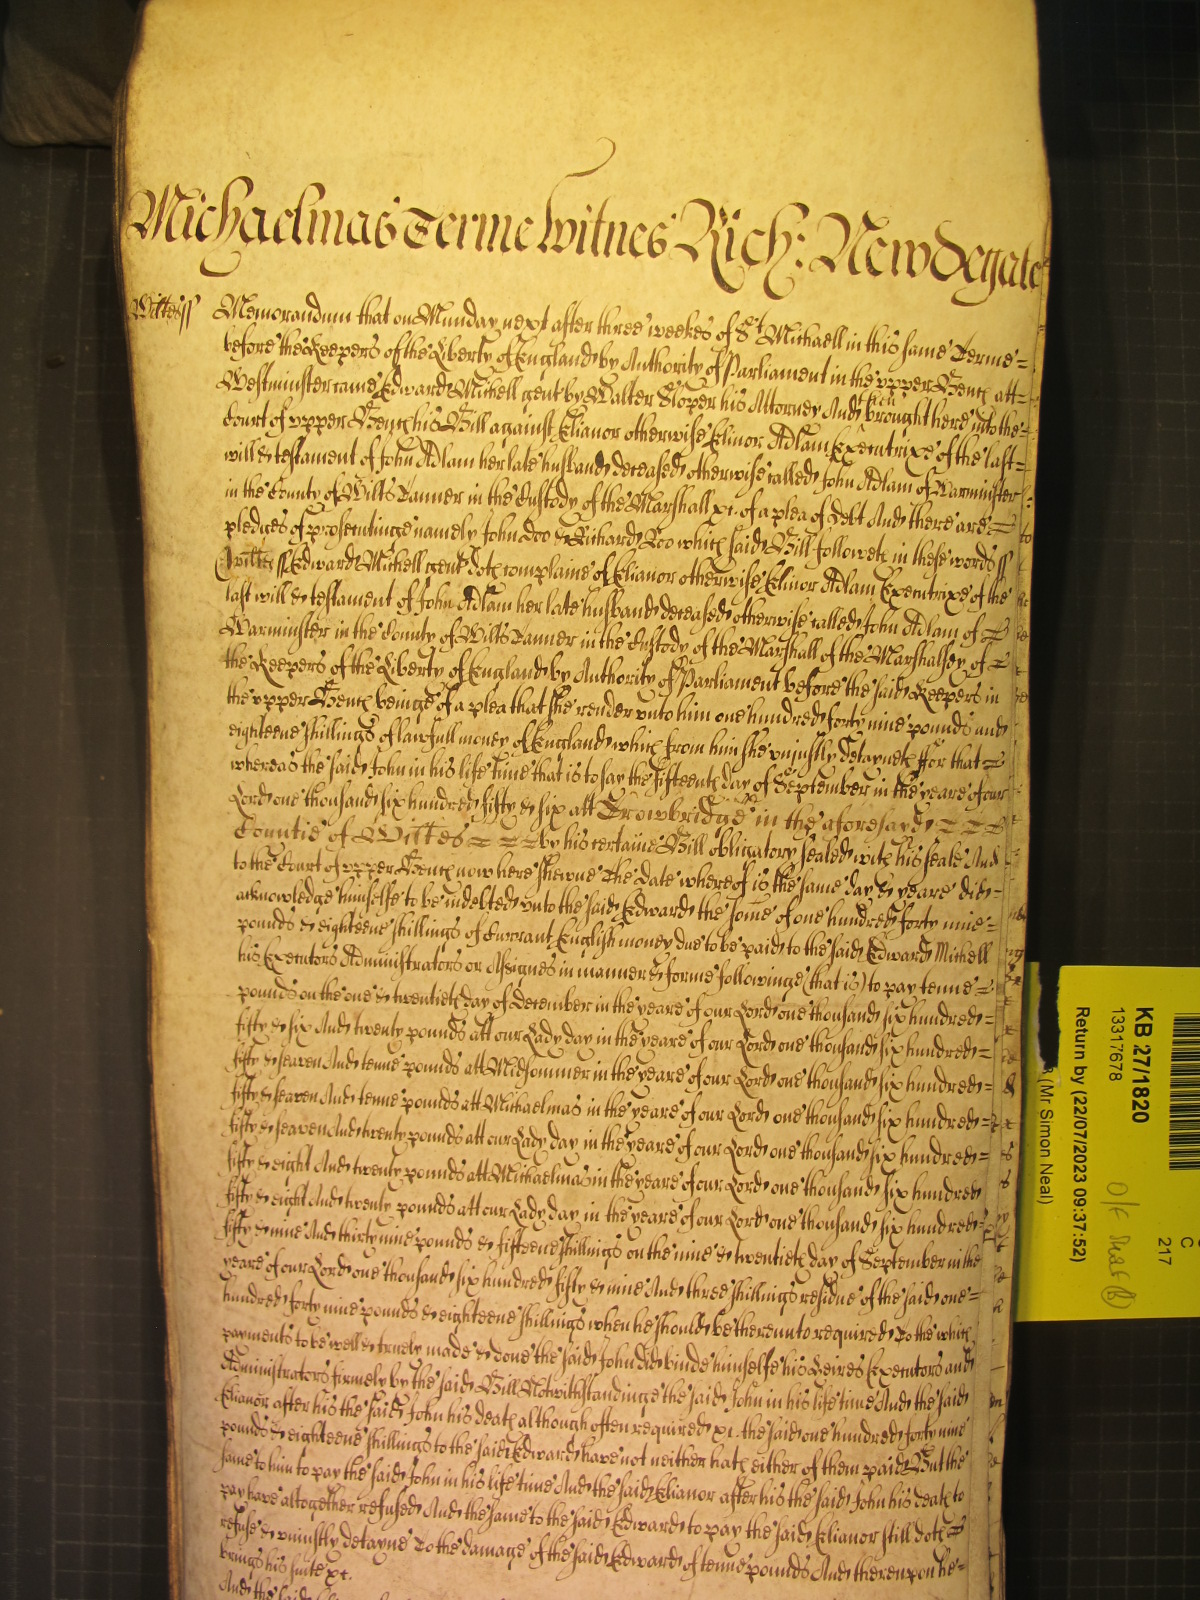 Michaelmas Terme Witnes Rich: Newdegate
Wiltes ss Memorandum that on Munday next after three weekes of St Michaell in this same Terme
before the Keepers of the Liberty of England by Authority of Parliament in the upper Bench att
Westminster came Edward Michell gent by Walter Sloper his Attorney And then brought here into the
Court of upper Bench his Bill against Elianor otherwise Elinor Adlam Executrixe of the last
will & testament of John Adlam her late husband deceased otherwise called John Adlam of Warminster
in the County of Wilts Tanner in the Custody of the Marshall xc. of a plea of debt And there are
pledges of prosecutinge namely John Doo & Richard Roo which said Bill followeth in these words ss
Wiltes ss Edward Michell gent doth complaine of Elianor otherwise Elinor Adlam Executrixe of the
last will & testament of John Adlam her late husband deceased otherwise called John Adlam of
Warminster in the County of Wilts Tanner in the Custody of the Marshall of the Marshalsey of
the Keepers of the Liberty of England by Authority of Parliament before the said Keepers in
the upper Bench beinge of a plea that she render unto him one hundred forty nine pounds and
eighteene shillings of lawfull money of England which from him she unjustly detayneth ffor that
whereas the said John in his life time that is to say the fifteenth day of September in the yeare of our
Lord one thousand six hundred fifty & six att Trowbridge in the aforesayd
Countie of Wiltes by his certaine Bill obligatory sealed with his seale And
to the Court of upper Bench now here shewne The date whereof is the same day & yeare did
acknowledge himselfe to be indebted unto the said Edward the some of one hundred forty nine
pounds & eighteene shillings of Currant English money due to be paid to the said Edward Michell
his Executors Administrators or Assignes in manner & forme followinge (that is) to pay tenne
pounds on the one & twentieth day of December in the yeare of our Lord one thousand six hundred
fifty & six And twenty pounds att our Lady day in the yeare of our Lord one thousand six hundred
fifty & seaven And tenne pounds att Midsommer in the yeare of our Lord one thousand six hundred
fifty & seaven And tenne pounds att Michaelmas in the yeare of our Lord one thousand six hundred
fifty & seaven And twenty pounds att our Lady day in the yeare of our Lord one thousand six hundred
fifty & eight And twenty pounds att Michaelmas in the yeare of our Lord one thousand six hundred
fifty & eight And twenty pounds att our Lady day in the yeare of our Lord one thousand six hundred
fifty & nine And thirty nine pounds & fifteene shillings on the nine & twentieth day of September in the
yeare of our Lord one thousand six hundred fifty & nine And three shillings residue of the said one
hundred forty nine pounds & eighteene shillings when he should be thereunto required To the which
payments to be well & truely made & done the said John did binde himselfe his Heires Executors and
Administrators firmely by the said Bill Notwithstandinge the said John in his life time And the said
Elianor after his the said John his death although often required xc. the said one hundred forty nine
pounds & eighteene shillings to the said Edward have not neither hath either of them paid But the
same to him to pay the said John in his life time And the said Elianor after his the said John his death to
pay have altogether refused And the same to the said Edward to pay the said Elianor still doth
refuse & uniustly detayne To the damage of the said Edward of tenne pounds And thereupon he
brings his suite xc.
And the said
KB 27/1820
13317678
Return by (22/07/2023 09:37:52)
(Mr Simon Neal)
C
217